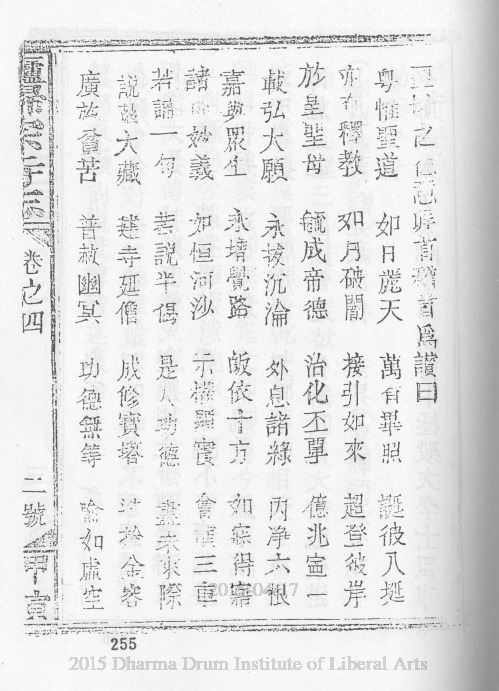 之德恐 首稽首爲讃曰
粤惟聖道 如日麗天 萬有畢照 誕彼八埏
亦有釋教 如月破闇 接引如來 超登彼岸
於皇聖母 毓成帝德 治化丕單 億兆寍一
載弘大願 永拔沉淪 外息諸緣 内净六根
嘉與眾生 永堵覺路 皈依十方 如寐得寤
諸 妙義 如恒河沙 示 羅寶 會 三車
若誦一句 若說半偈 是人功德 盡未來際
說兹大藏 建寺延僧 成修寶塔 金容
廣施貧苦 普救幽冥 功德無等 喻如虛空
卷之四
二號
甲寅
255
2015 Dharma Drum Institute of Liberal Arts